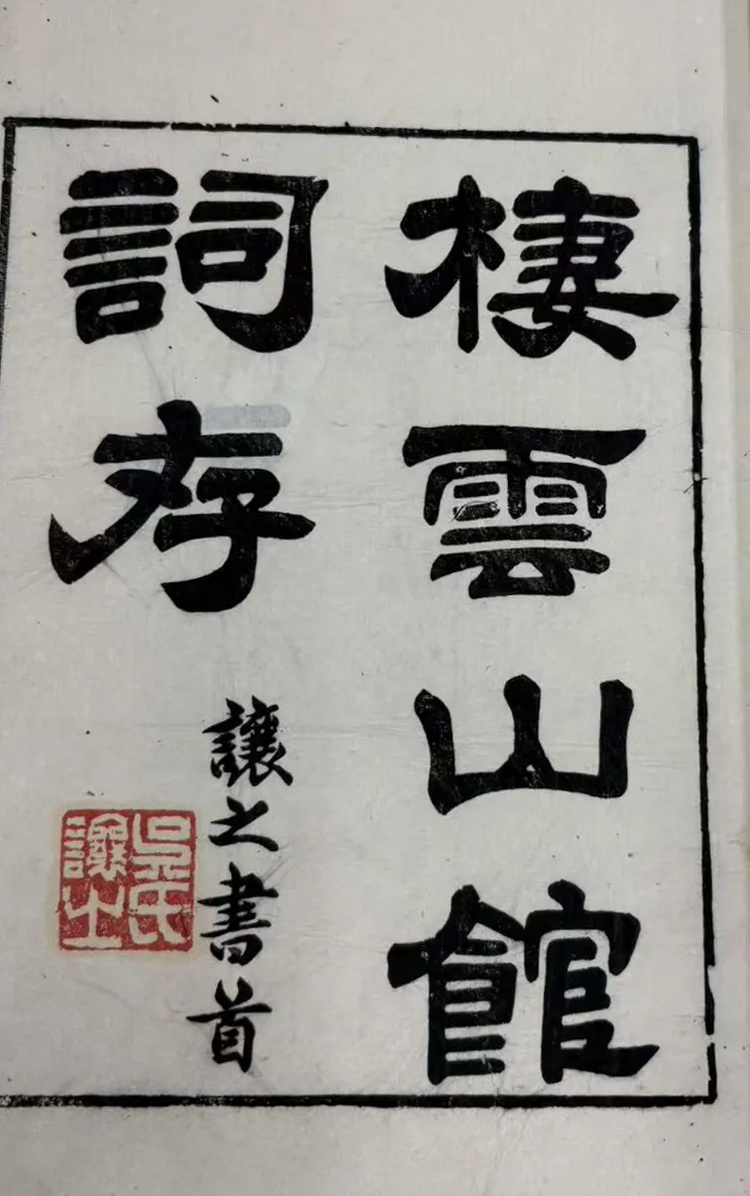 棲雲山館
詞存
讓之書首
吳氏讓之